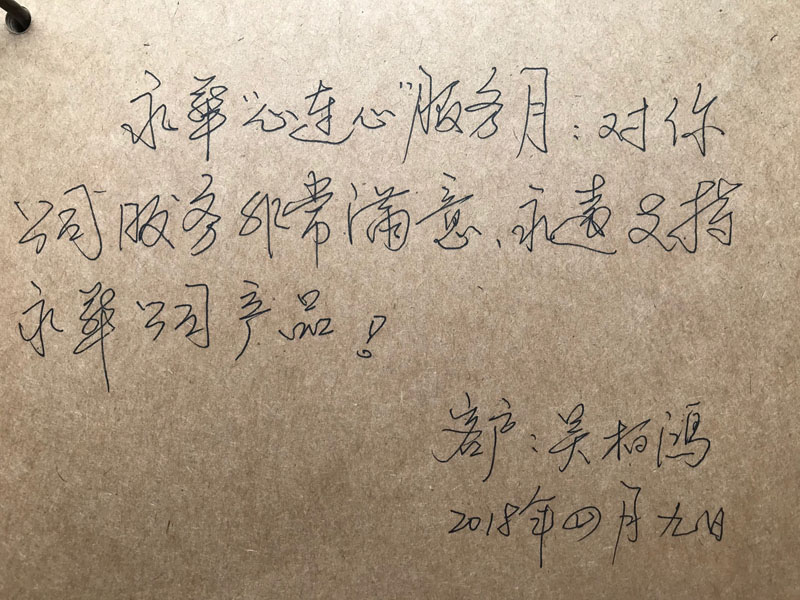 永華“心连心”服务月：对你
公司服务非常满意、永遠支持
永華公司产品！
客户：吴柏鸿
2018年四月九日